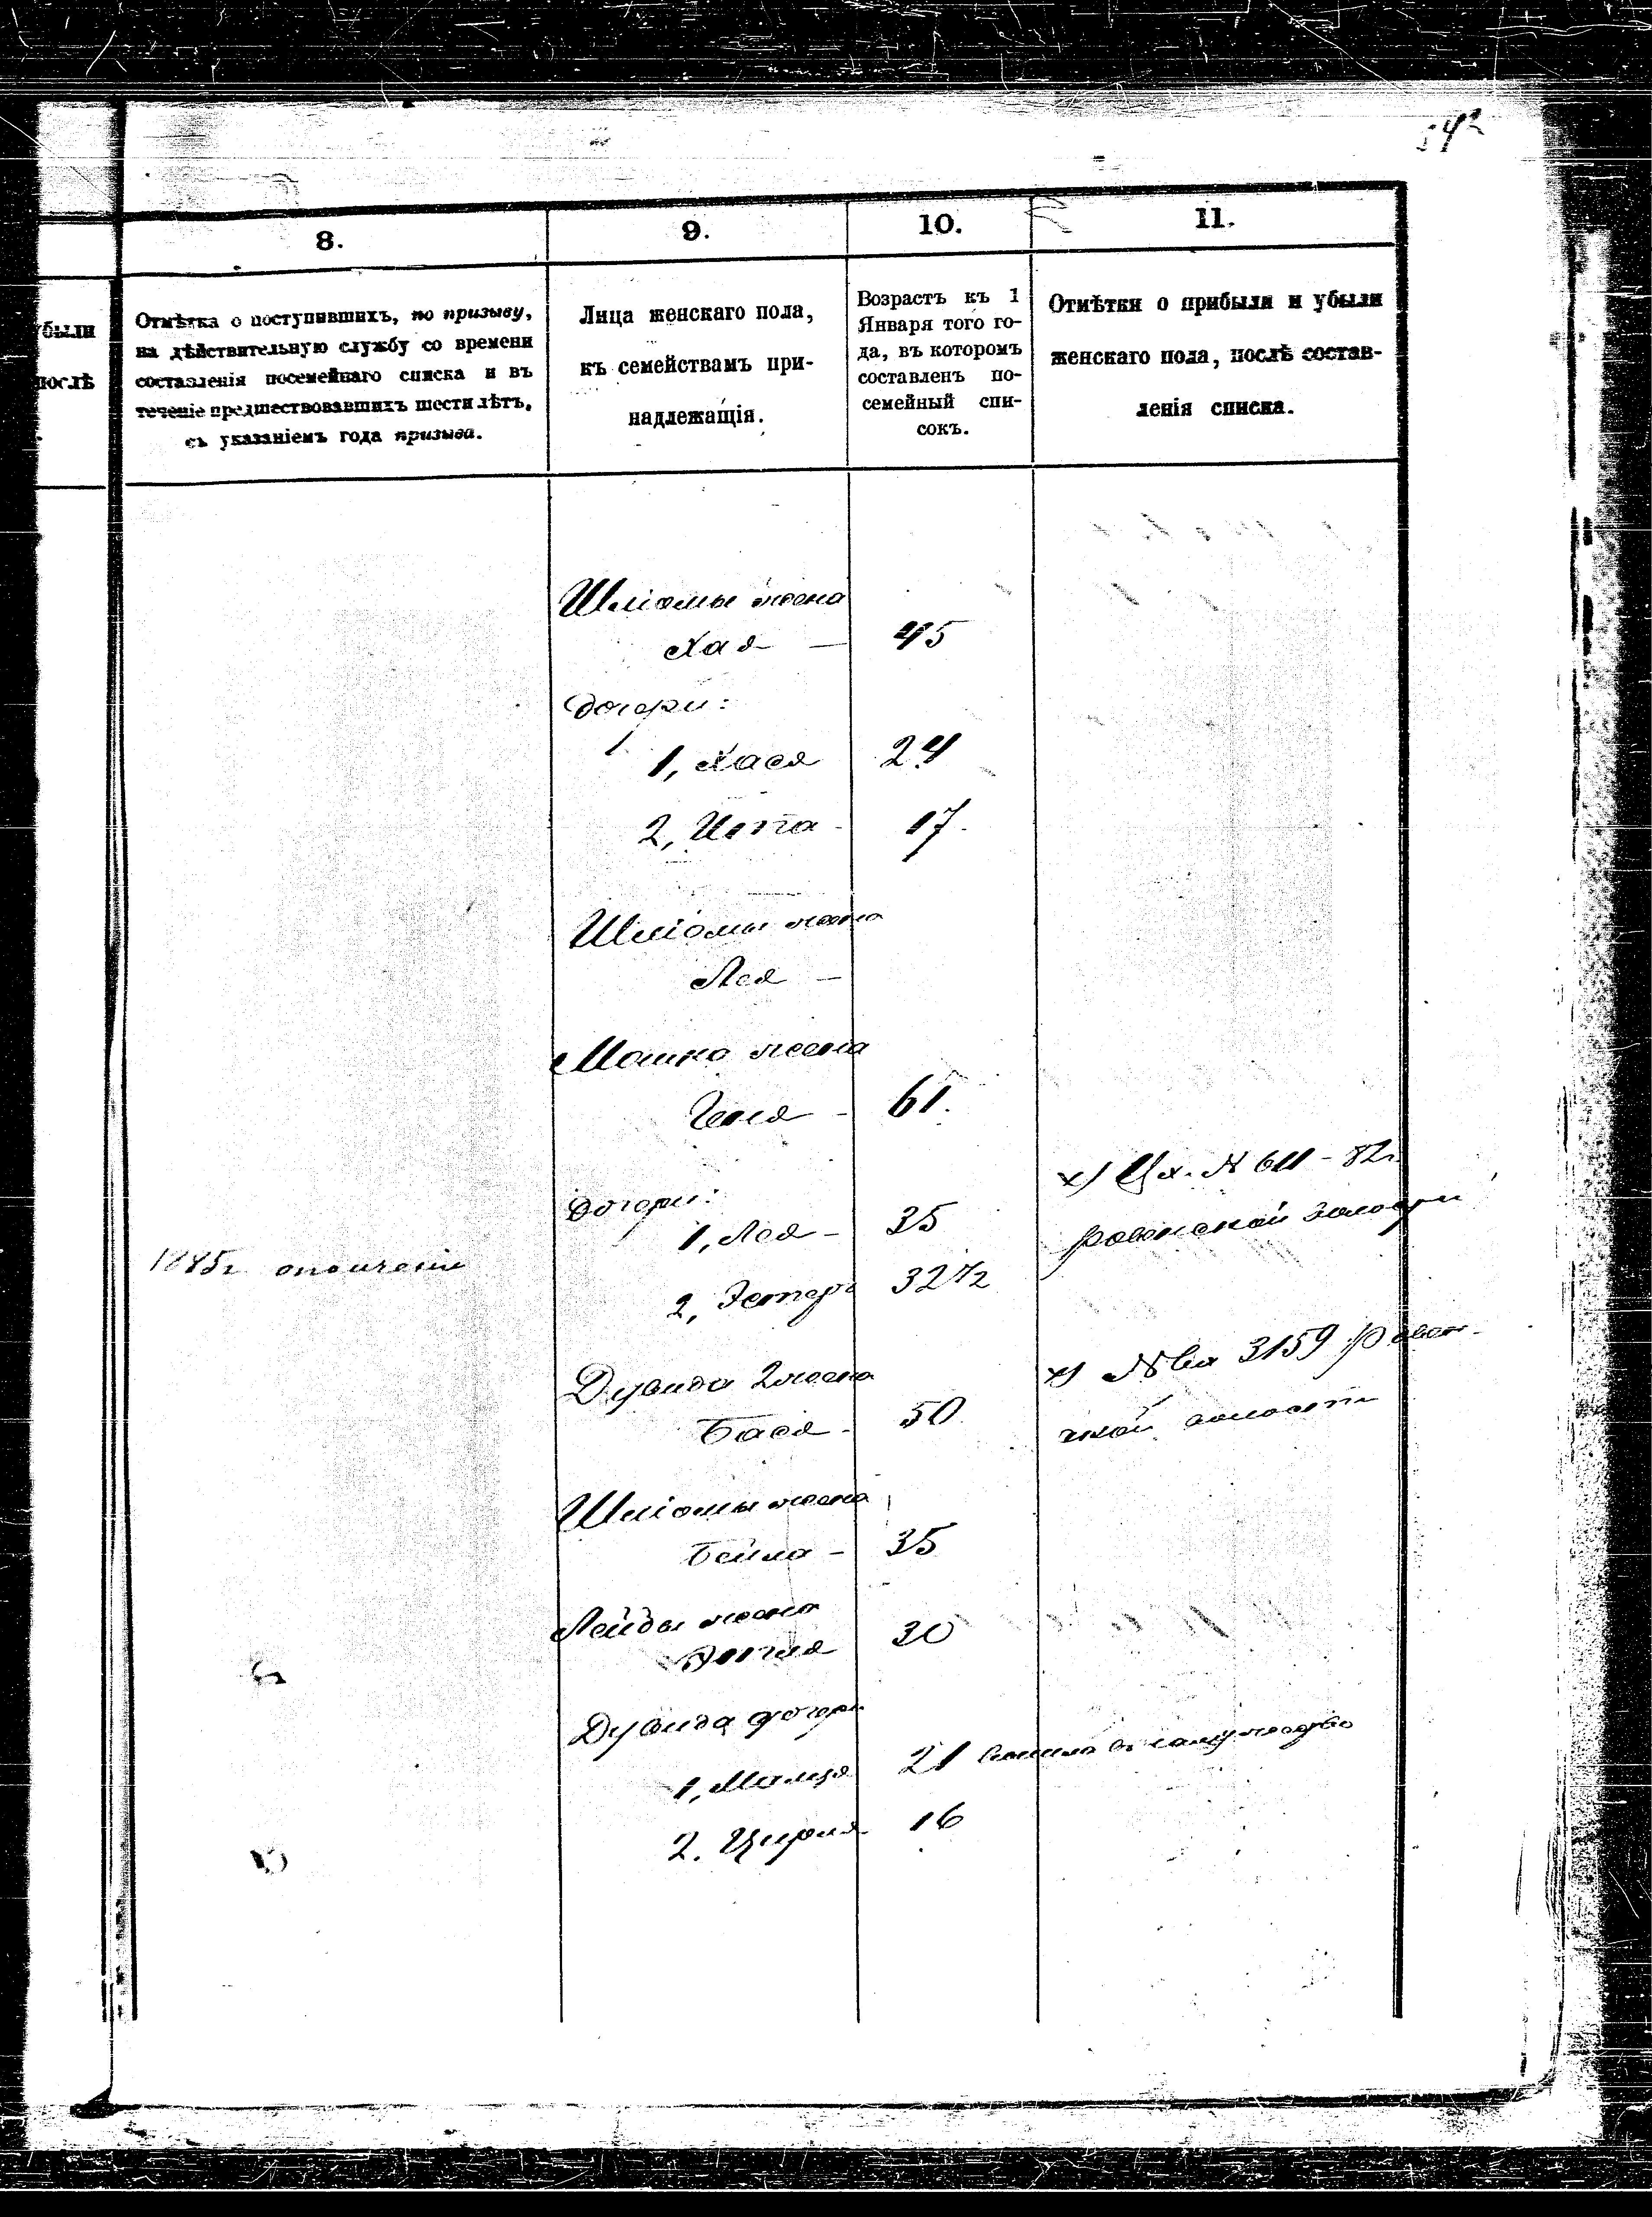 8.
9.
10.
11.
были
послѣ
Отмѣтка о поступившихъ, по призыву,
на дѣйствительную службу со времени
составленія посемейнаго списка и въ
теченіе предшествовавшихъ шести лѣтъ,
съ указаніемъ года призыва.
Лица женскаго пола,
къ семействамъ при-
надлежащія.
Возрастъ къ 1
Января того го-
да, въ которомъ
составленъ по-
семейный спи-
сокъ.
Отмѣтки о прибыли и убыли
женскаго пола, послѣ состав-
ленія списка.
Шліомы жена
Хая — 45
дочери:
1, Хася 24
2, Ита - 17.
Шліомы жена
Лея —
Мошко жена
Геня - 61.
х) Вх. N 611 - 82г.
дочери:
1, Лея - 35
ровенской волости
1885г ополченіе
2, Эстеръ 32 1/2
Дувида 2 жена
х) N вх 3159 Ровен-
Бася - 50
ской волости
Шліомы жена
Бейла - 35
Лейбы жена
30
Дувида дочери
1, 21 вышла въ замужество
2. 16